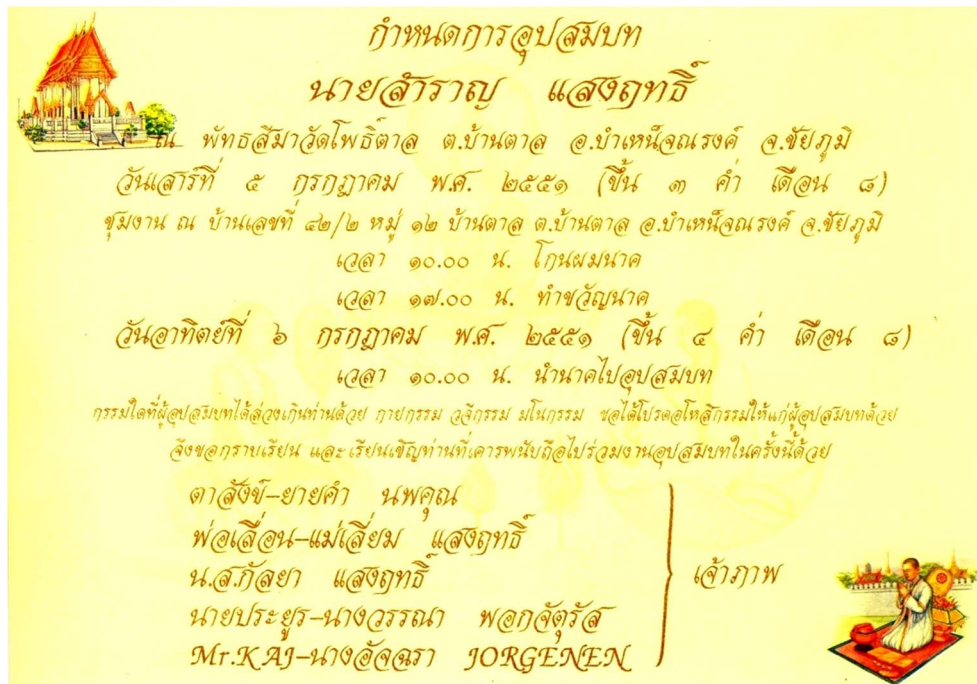 กำหนดการอุปสมบท
นายสำราญ แสงฤทธิ์
ณ พัทธสีมาวัดโพธิ์ตาล ต.บ้านตาล อ.บำเหน็จณรงค์ จ.ชัยภูมิ
วันเสาร์ที่ ๕ กรกฎาคม พ.ศ. ๒๕๕๑ (ขึ้น ๓ ค่ำ เดือน ๘)
ชุมงาน ณ บ้านเลขที่ ๔๒/๒ หมู่ ๑๒ บ้านตาล ต.บ้านตาล อ.บำเหน็จณรงค์ จ.ชัยภูมิ
เวลา ๑๐.๐๐ น. โกนผมนาค
เวลา ๑๗.๐๐ น. ทำขวัญนาค
วันอาทิตย์ที่ ๖ กรกฎาคม พ.ศ. ๒๕๕๑ (ขึ้น ๔ ค่ำ เดือน ๘)
เวลา ๑๐.๐๐ น. นำนาคไปอุปสมบท
กรรมใดที่ผู้อุปสมบทได้ล่วงเกินท่านด้วย กายกรรม วจีกรรม มโนกรรม ขอได้โปรดอโหสิกรรมให้แก่ผู้อุปสมบทด้วย
จึงขอกราบเรียน และเรียนเชิญท่านที่เคารพนับถือไปร่วมงานอุปสมบทในครั้งนี้ด้วย
ตาสังข์-ยายคำ นพคุณ
พ่อเลื่อน-แม่เลี่ยม แสงฤทธิ์
น.ส.กัลยา แสงฤทธิ์
เจ้าภาพ
นายประยูร-นางวรรณา พอกจัตุรัส
Mr.KAJ-นางอัจฉรา JORGENEN